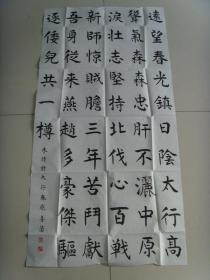 遠望春光鎮日陰太行高
聳氣森森忠肝不灑中原
淚壯志堅持北伐心百戰
新師驚賊膽三年苦鬥獻
吾身從來燕趙多豪傑驅
逐倭兒共一樽
朱德詩太行春感